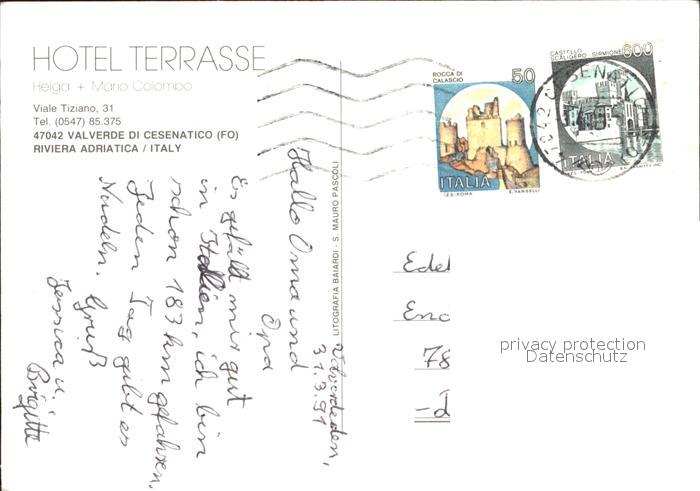 HOTEL TERRASSE
Helga + Mario Colombo
Viale Tiziano, 31
Tel. (0547) 85.375
47042 VALVERDE DI CESENATICO (FO)
RIVIERA ADRIATICA / ITALY
LITOGRAFIA BAIARDI - S. MAURO PASCOLI
31.3.91
Hallo Oma und
Opa
Es gefällt mir gut
in Italien, ich bin
schon 183 km gefahren.
Jeden Tag gibt es
Nudeln. Gruß
Jessica u.
Brigitte
ROCCA DI
CALASCIO
50
ITALIA
I.P.Z.S.-ROMA E. VANGELLI
CASTELLO
SCALIGERO SIRMIONE
600
ITALIA
Edel
Enc
78
privacy protection
Datenschutz